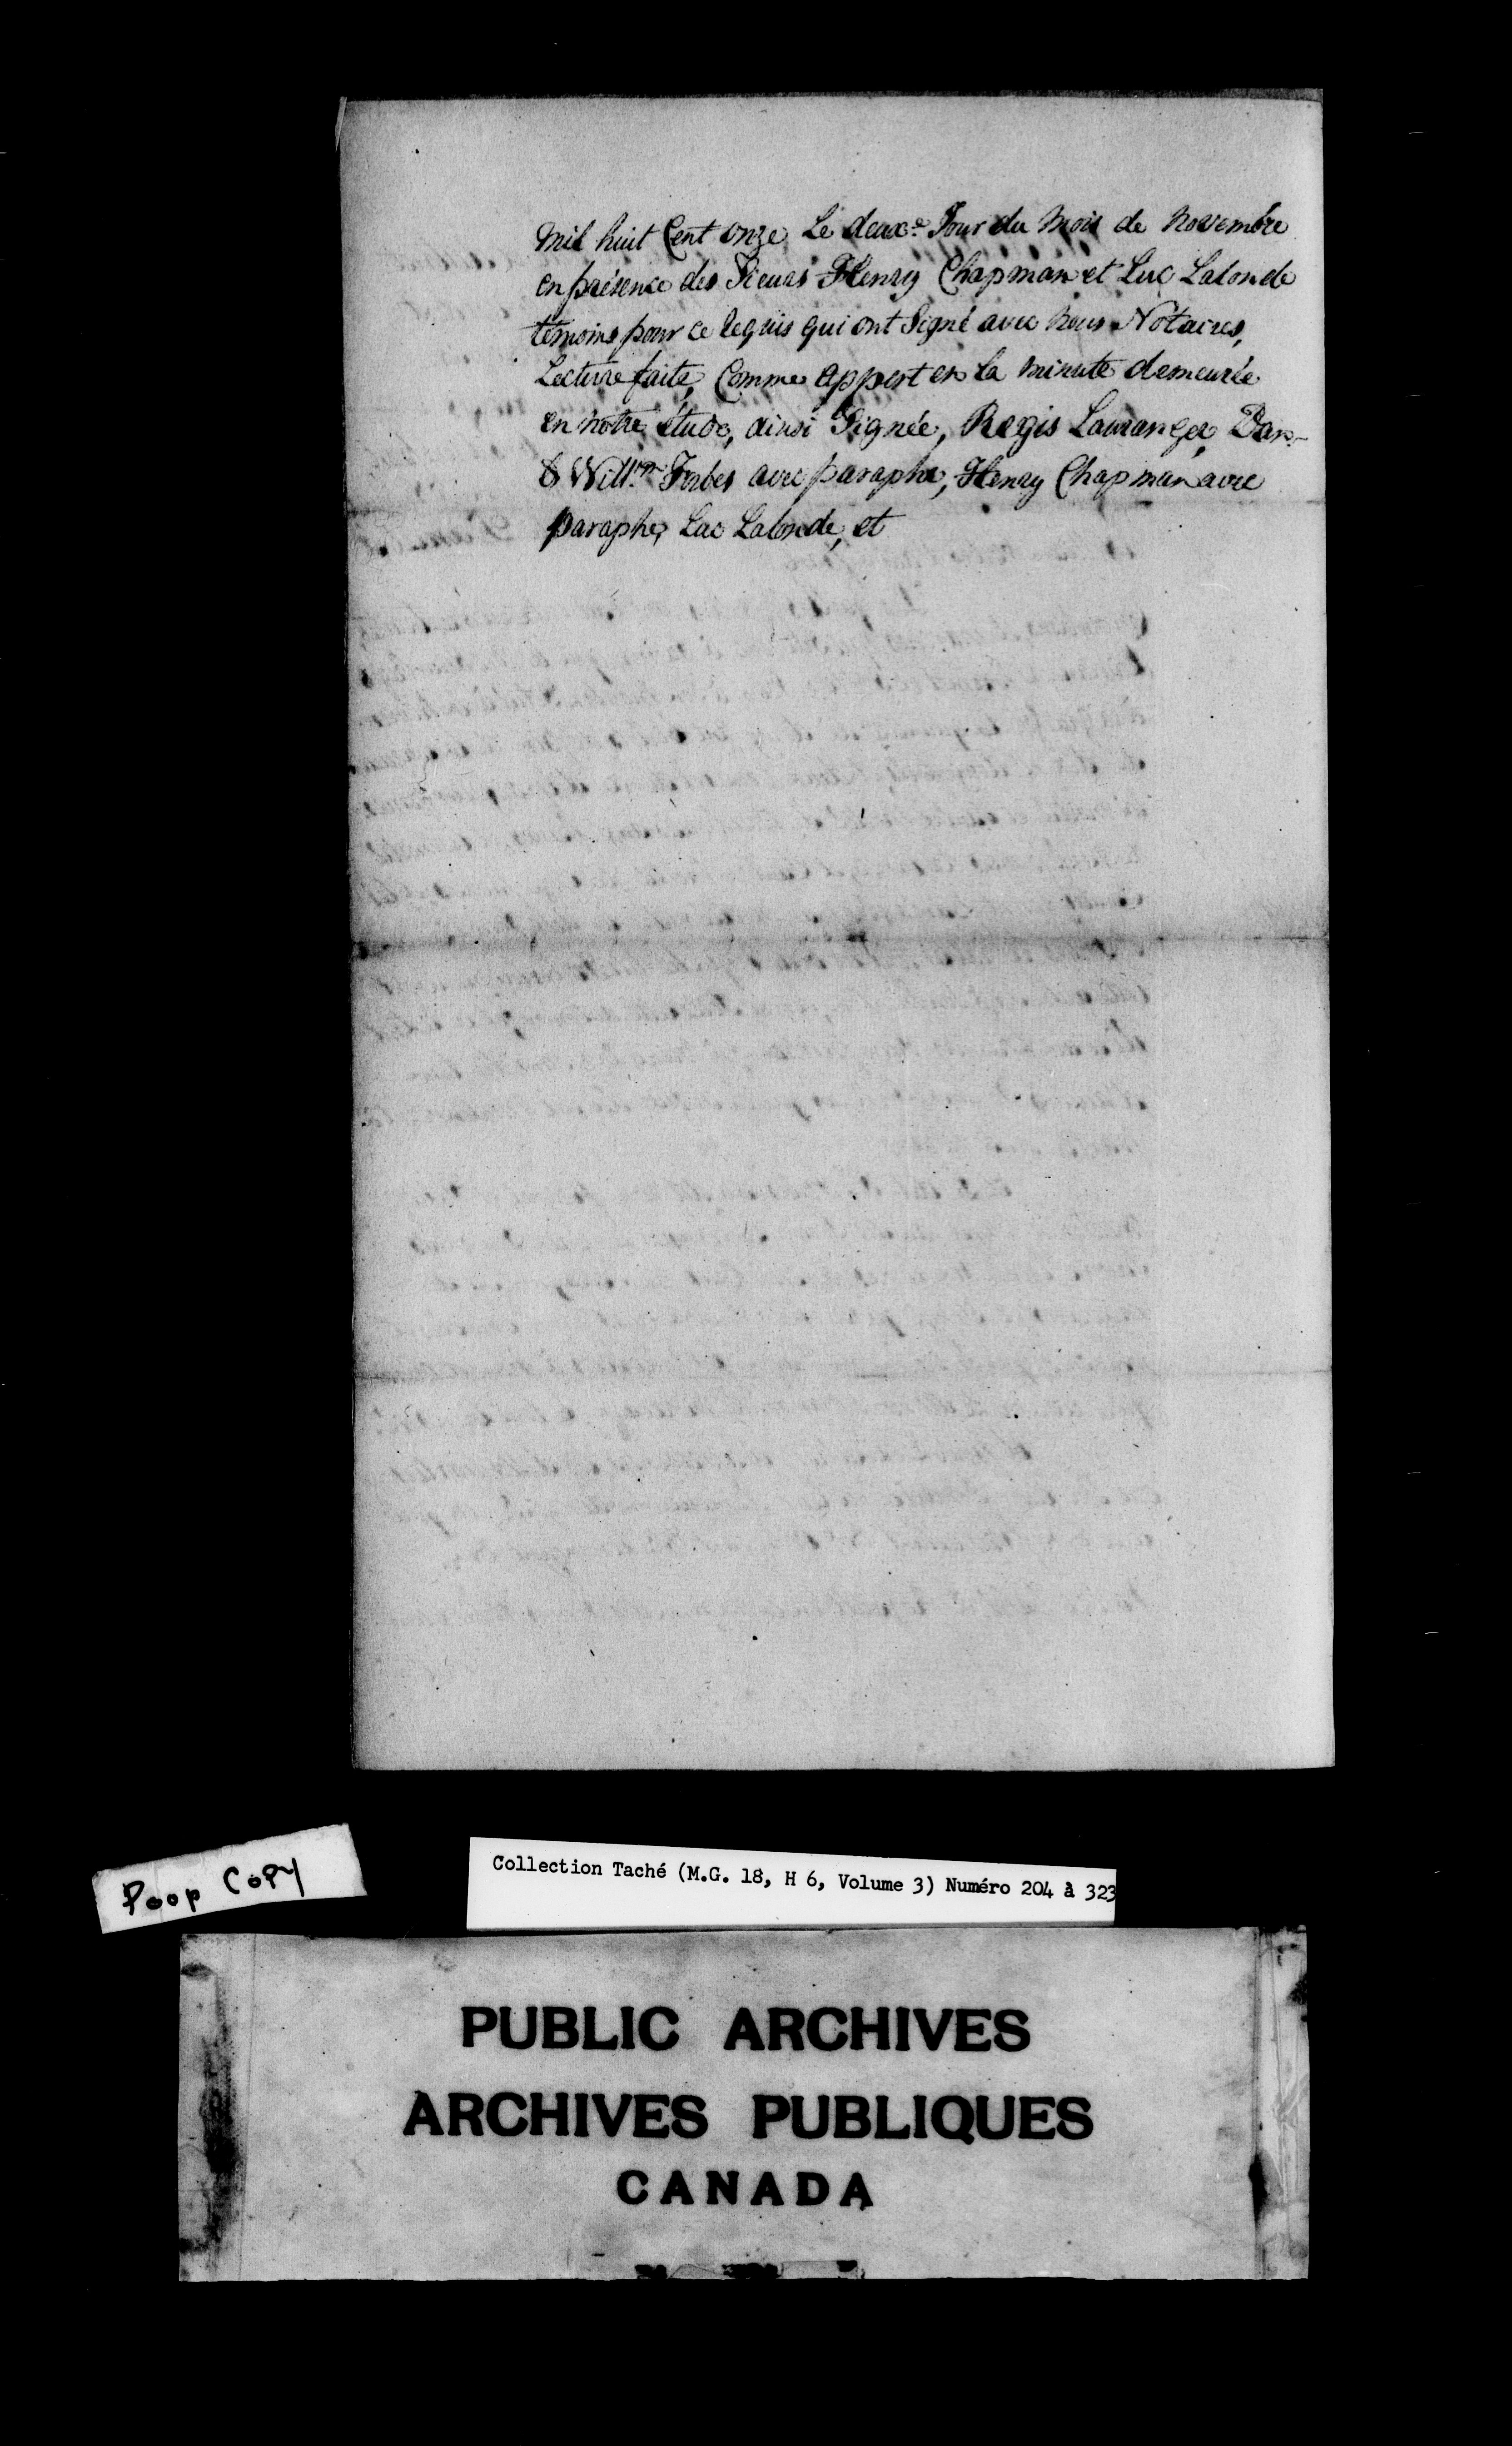 Mil huit Cent onze Le deux.e Jour du Mois de Novembre
en présence des Sieurs Henry Chapman et Luc Lalonde
témoins pour ce requis qui ont Signé avec Nous Notaires,
Lecture faite, Comme appert en la minute demeurée
en notre étude, ainsi Signée, Regis Lauranger, Dan.
& Will.m Forbes avec paraphe, Henry Chapman avec
paraphe, Luc Lalonde, et
Poor Copy
Collection Taché (M.G. 18, H 6, Volume 3) Numéro 204 à 323
PUBLIC ARCHIVES
ARCHIVES PUBLIQUES
CANADA